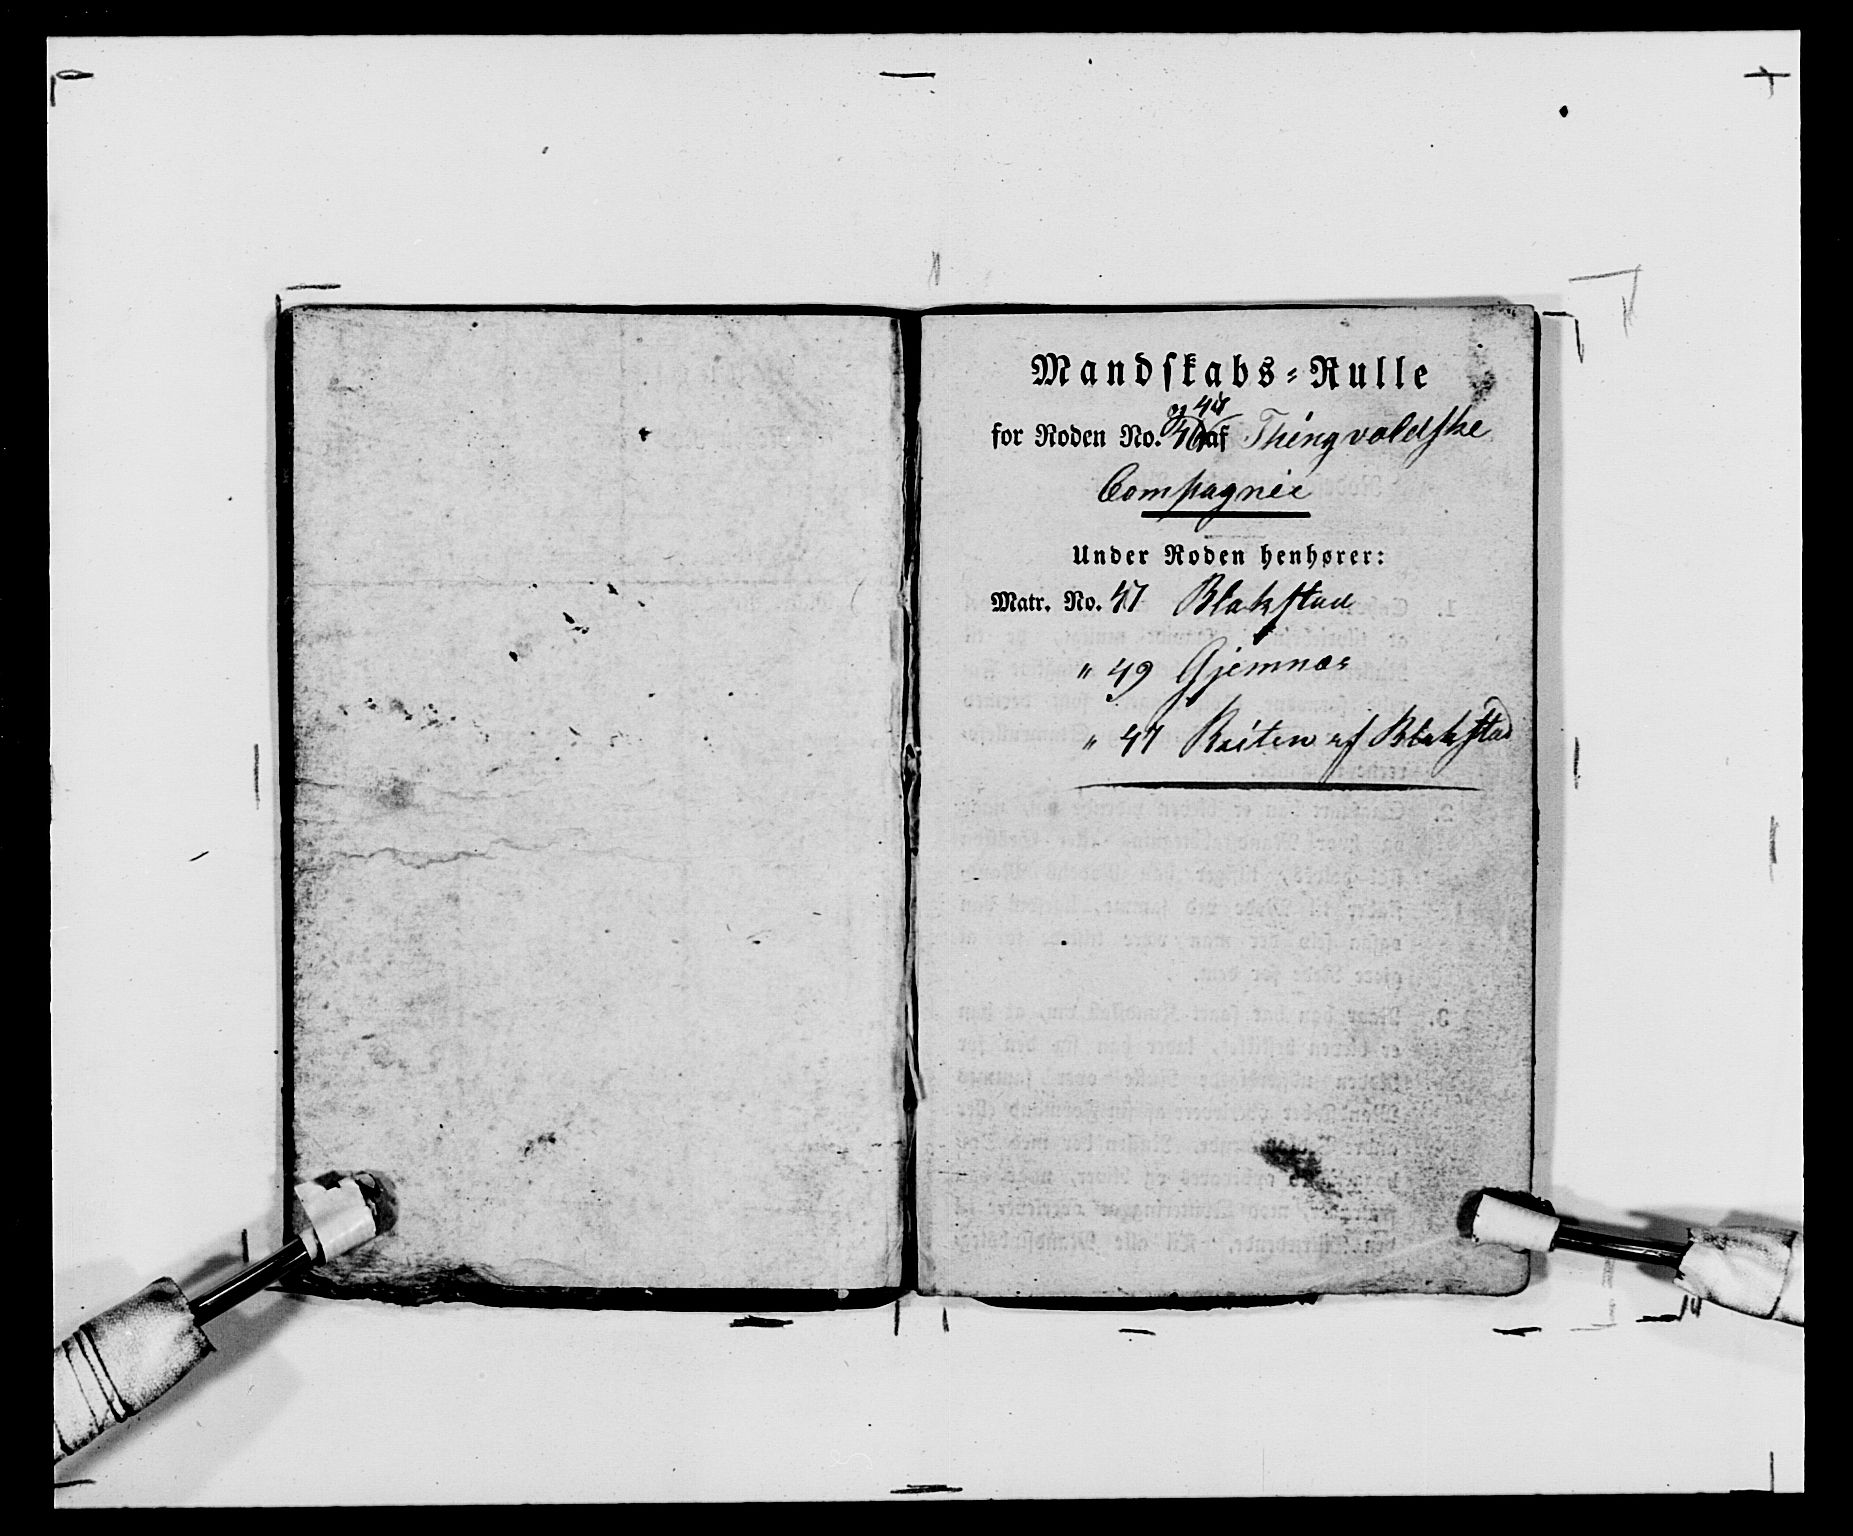 Mandskabs-Rulle
for Roden No. 46 og 47 af Thingvoldske
Compagnie
Under Roden henhører:
Matr. No. 47 Blakstad
" 49 Gjemnæs
" 47 Reiten af Blakstad